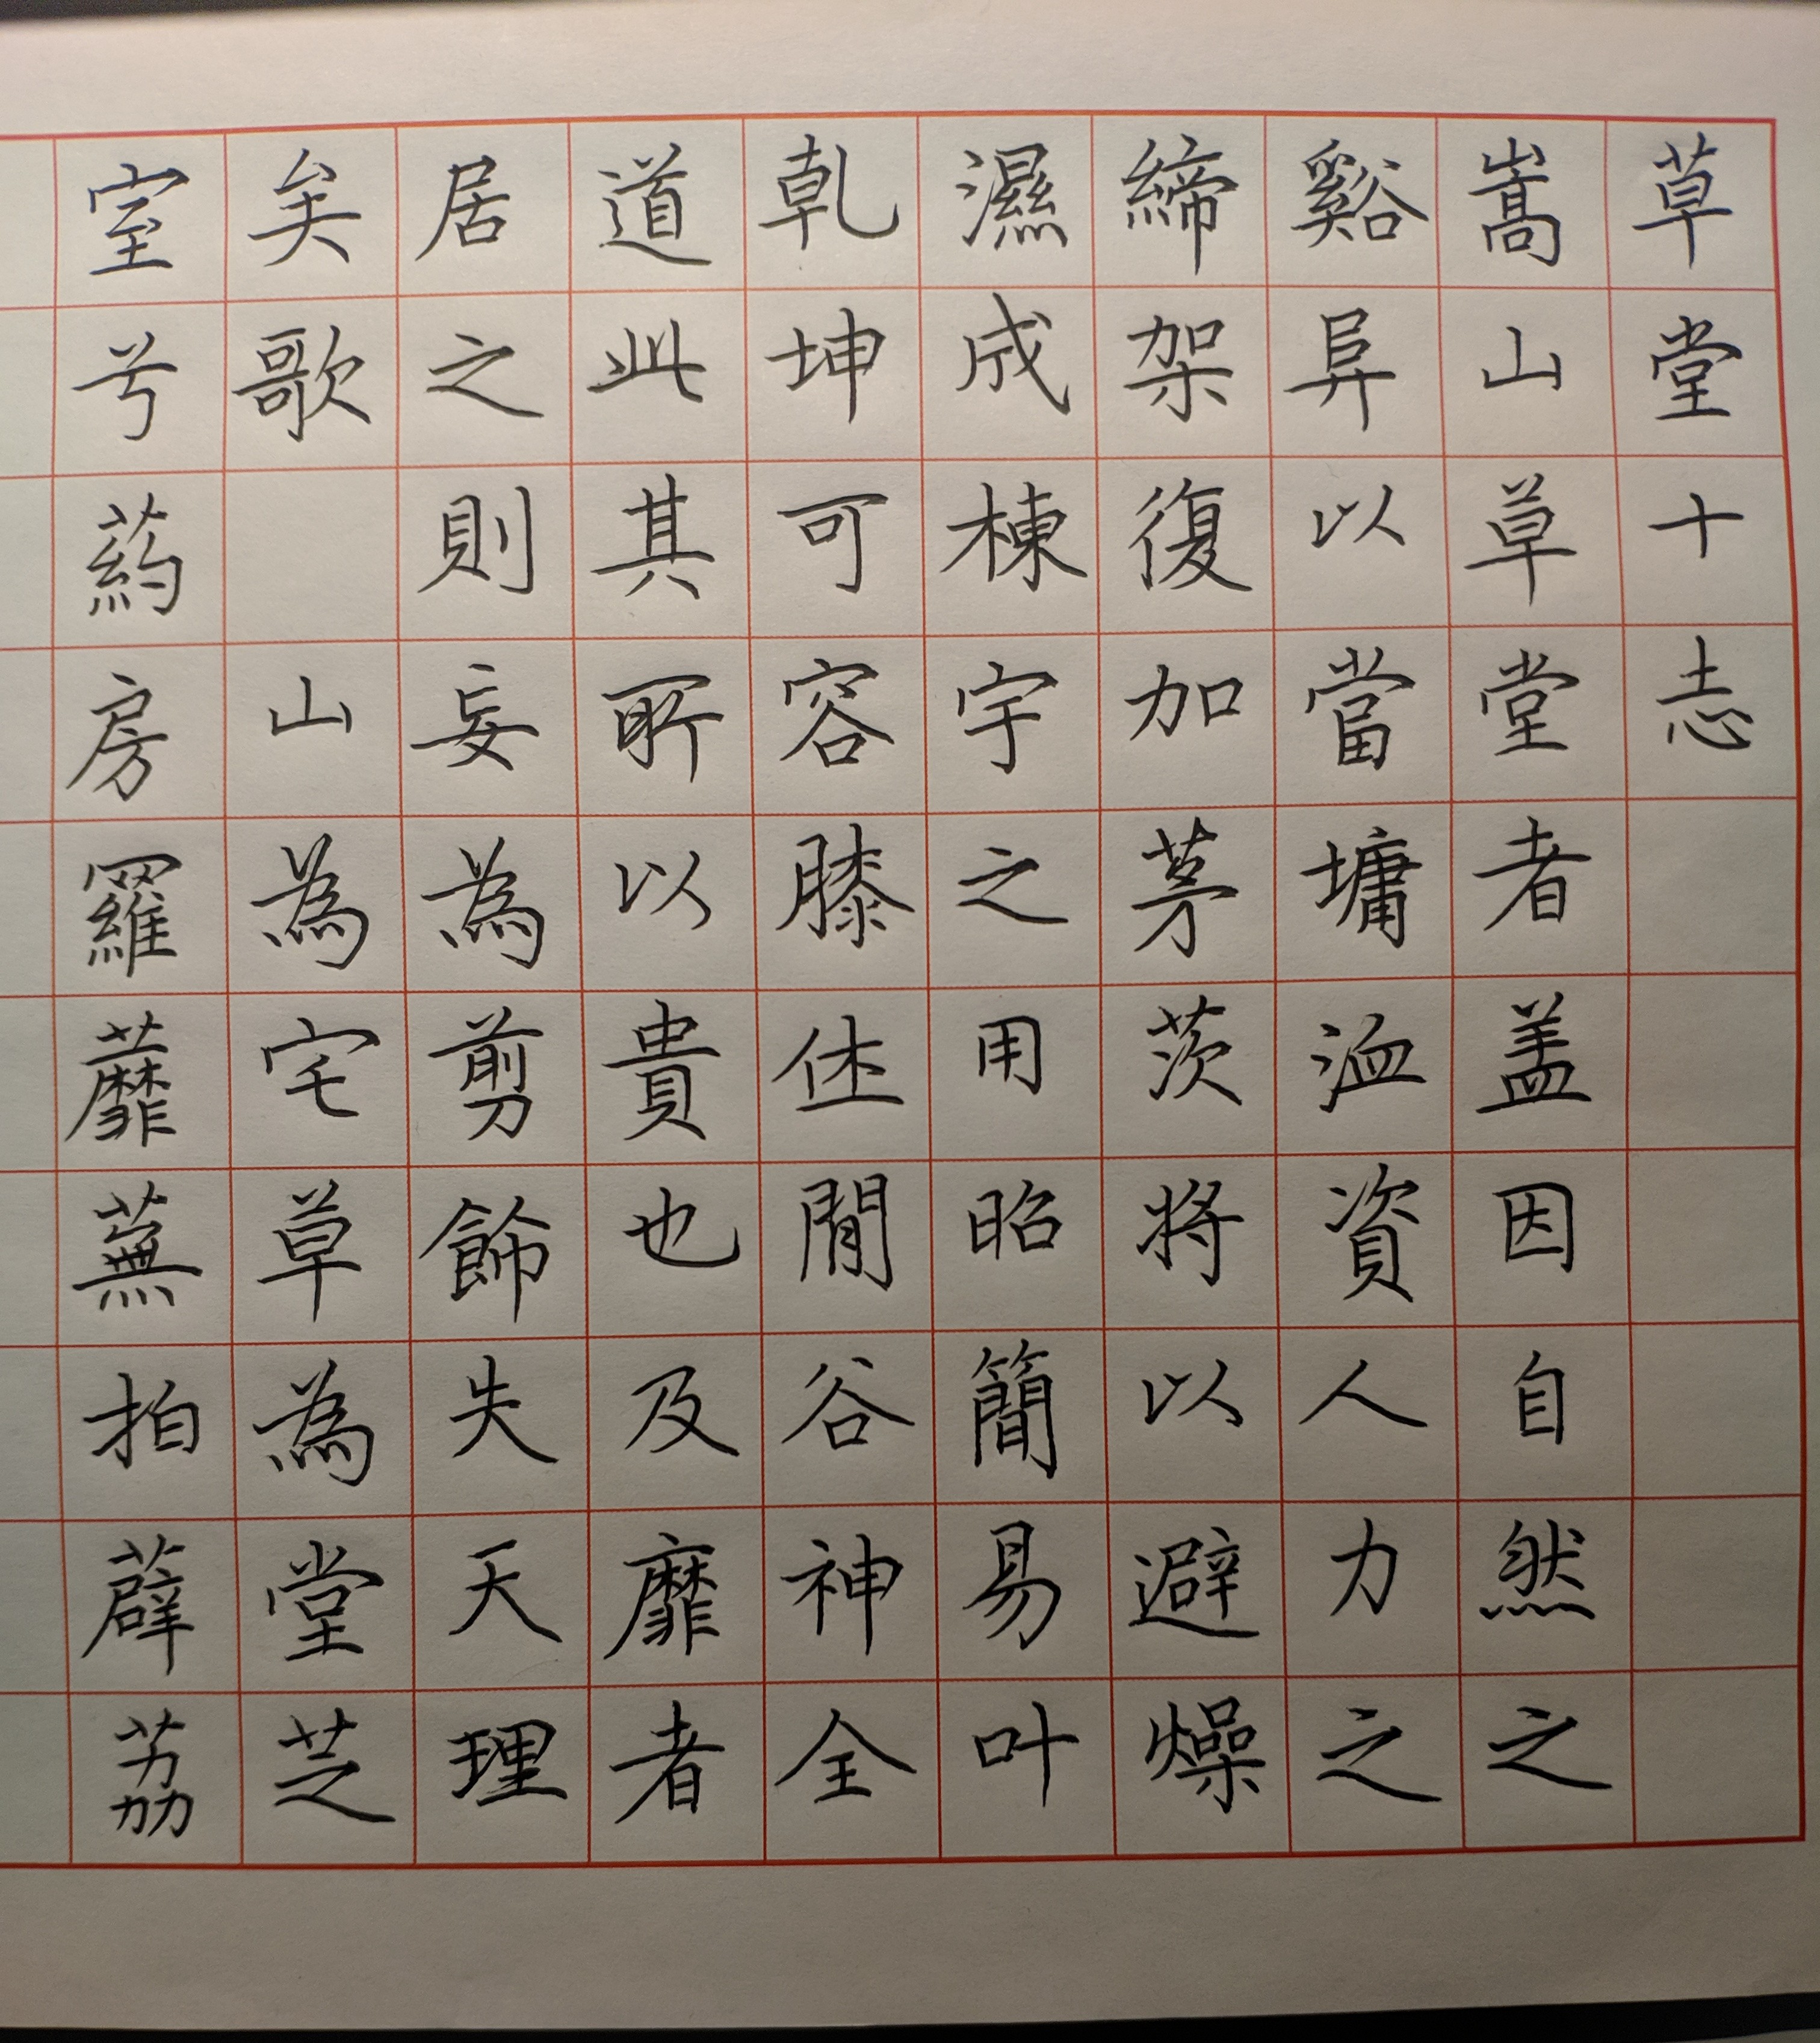 草堂十志
嵩山草堂者盖因自然之
谿阜以當墉洫資人力之
締架復加茅茨將以避燥
濕成棟宇之用昭簡易叶
乾坤可容膝休閒谷神全
道此其所以貴也及靡者
居之則妄為剪飾失天理
矣歌 山為宅草為堂芝
室兮葯房羅蘼蕪拍薜荔